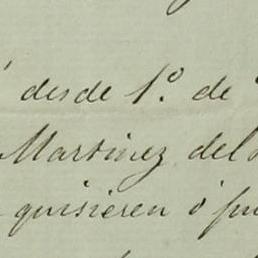 desde 1.º de
Martinez del
quisieren ó